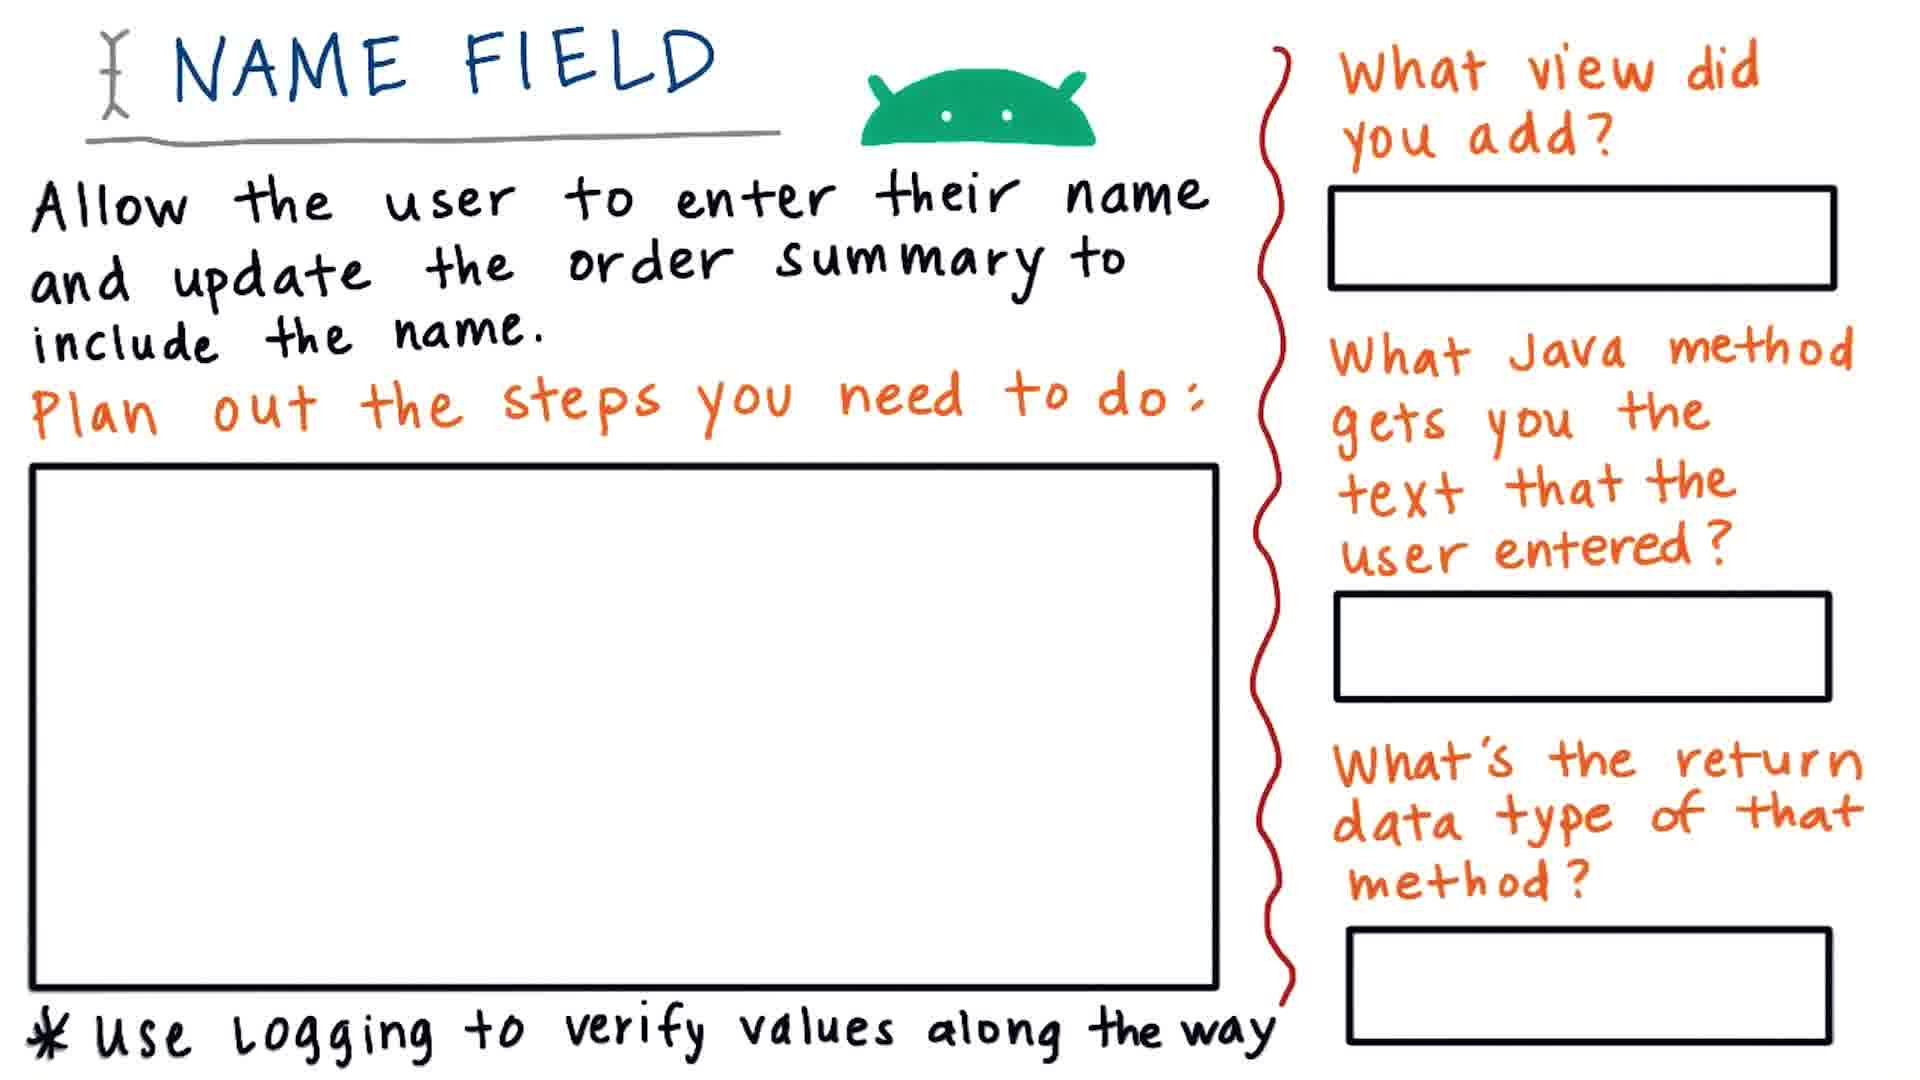 NAME FIELD
Allow the user to enter their name
and update the order summary to
include the name.
Plan out the steps you need to do:
* Use Logging to verify values along the way
What view did
you add?
What Java method
gets you the
text that the
user entered?
What's the return
data type of that
method?